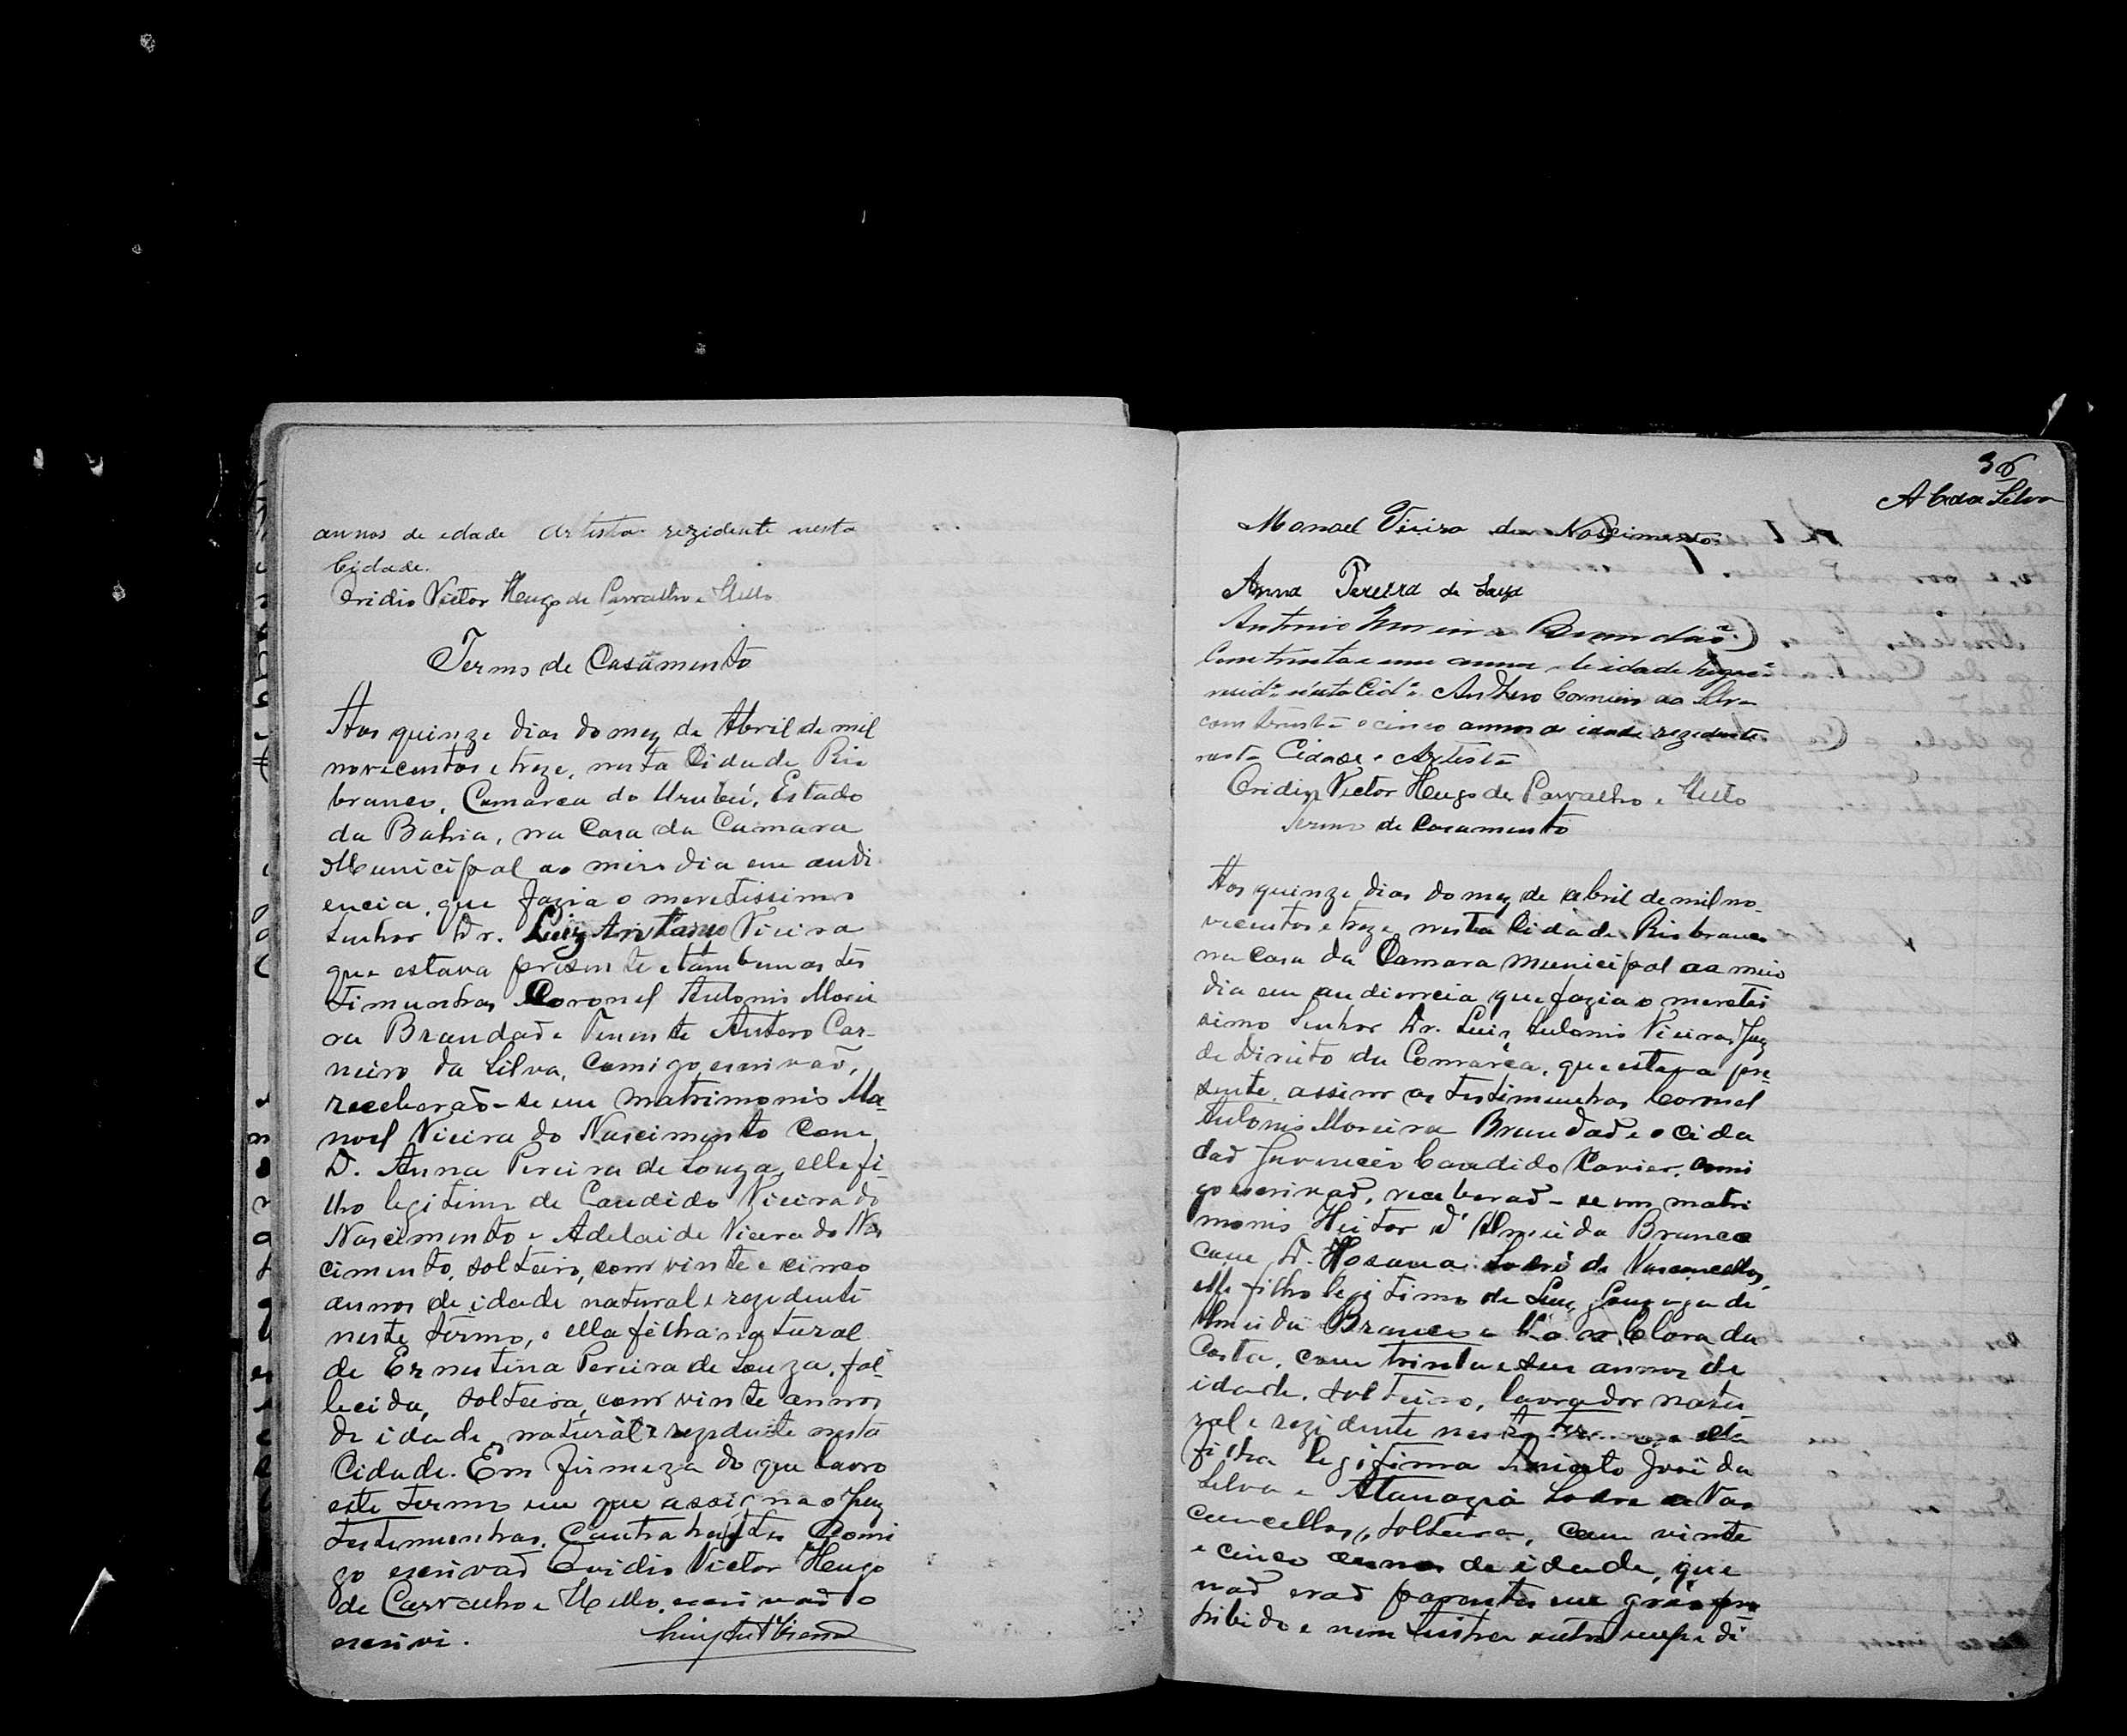 annos de edade Artista rezidente nesta
Cidade.
Ovidio Victor Hugo de Carvalho e Mello
Termo de Casamento
Aos quinze dias do mez de Abril de mil
novecentos e treze, nesta Cidade Rio
branco, Comarca do Urubú, Estado
da Bahia, na Casa da Camara
Municipal ao meio dia em audi
encia, que fazia o meretissimo
Senhor Dr. Luiz Antonio Vieira
que estava presente e tambem as tes
timunhas Coronel Antonio Morei
ra Brandaõ e Tenente Antero Car-
neiro da Silva, comigo escrivaõ,
receberaõ-se em matrimonio Ma-
noel Vieira do Nascimento com
D. Anna Pereira de Souza, elle fi-
lho legitimo de Candido Vieira do
Nascimento e Adelaide Vieira do Nas
cimento, solteiro, com vinte e cinco
annos de idade natural e rezidente
neste termo, e ella filha natural
de Ernestina Pereira de Souza, fal-
lecida, solteira, com vinte annos
de idade, natural e rezidente nesta
Cidade. Em firmeza do que lavro
este termo em que assigna o Juiz
testemunhas, Contrahentes Comi
go escrivaõ Ovidio Victor Hugo
de Carvalho e Mello, escrivaõ o
escrivi.
36
A C da Silva
Manoel Vieira do Nascimento
Anna Pereira de Souza
Antonio Moreira Brandaõ
Com trinta e um annos de idade
resid.e nesta Cid.e Anthero Carneiro da Silva
com trinta e cinco annos de idade rezidente
nesta Cidade e Artista
Ovidio Victor Hugo de Carvalho e Mello
Termo de Casamento
Aos quinze dias do mez de abril de mil no-
vecentos e treze, nesta Cidade Rio branco
na Casa da Camara Municipal ao meio
dia em audiencia que fazia o meretis
simo Senhor Dr. Luiz Antonio Vieira, Juiz
de Direito da Comarca, que estava pre-
sente, assim as testimunhas Coronel
Antonio Moreira Brandaõ e o Cida
daõ Juvencio Candido Xavier, comi
go escrivaõ, receberaõ-se em matri
monio Heitor d'Almeida Branco
com D. Hosana Sodré de Vasconcellos,
elle filho legitimo de Luiz Gonzaga de
Almeida Branco e Clara da
Costa, com trinta e seis annos de
idade, solteiro, lavrador natu
ral e rezidente neste termo, e ella
filha legitima José da
Silva e Atanazia Sodre de Vas
concellos, solteira, com vinte
e cinco annos de idade, que
naõ eraõ parentes em gráo pro
hibido e nem tinhaõ outro impedi